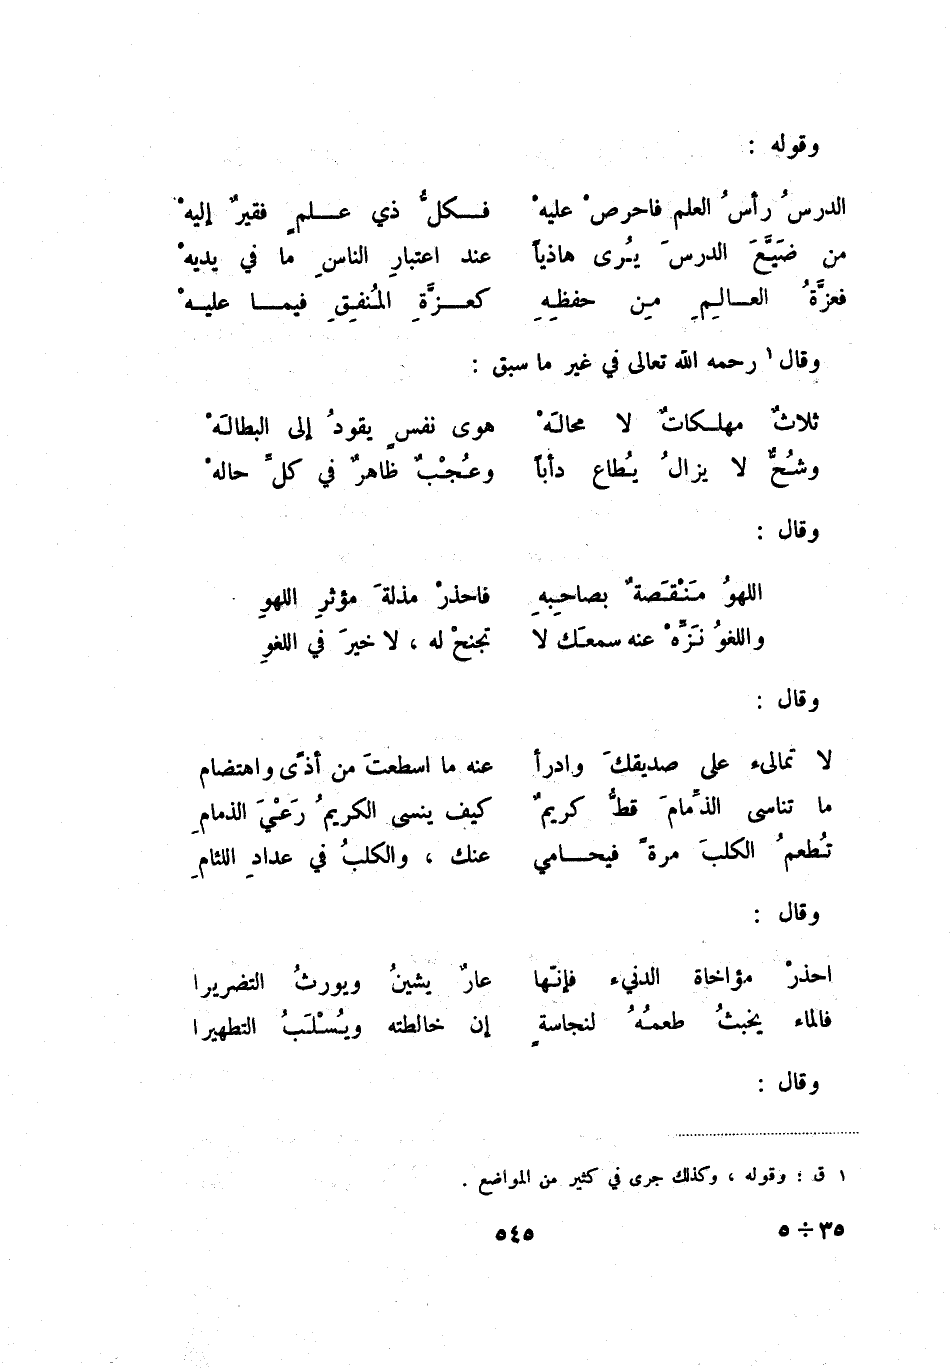 وقوله :
الدرسُ رأسُ العلم فاحرصْ عليهْ فكلُّ ذي علمٍ فقيرٌ إليهْ
من ضَيَّعَ الدرسَ يُرى هاذياً عند اعتبارِ الناسِ ما في يديهْ
فعزَّةُ العالِمِ مِن حفظِهِ كعزَّةِ المُنفِقِ فيما عليهْ
وقال١ رحمه الله تعالى في غير ما سبق :
ثلاثٌ مهلكاتٌ لا محالَهْ هوى نفسٍ يقودُ إلى البطالَهْ
وشُحٌّ لا يزالُ يُطاع دأباً وعُجْبٌ ظاهرٌ في كلِّ حالهْ
وقال :
اللهوُ مَنْقَصةٌ بصاحبِهِ فاحذرْ مذلةَ مؤثرِ اللهوِ
واللغوُ نَزِّهْ عنه سمعَك لا تجنحْ له ، لا خيرَ في اللغوِ
وقال :
لا تمالىء على صديقكَ وادرأ عنه ما اسطعتَ من أذًى واهتضام
ما تناسى الذِّمامَ قطُّ كريمٌ كيف ينسى الكريمُ رَعْيَ الذمامِ
تُطعمُ الكلبَ مرةً فيحامي عنك ، والكلبُ في عدادِ اللئامِ
وقال :
احذرْ مؤاخاة الدنيء فإنّها عارٌ يشينُ ويورثُ التضريرا
فالماء يخبثُ طعمُهُ لنجاسةٍ إن خالطته ويُسْلَبُ التطهيرا
وقال :
١ ق : وقوله ، وكذلك جرى في كثير من المواضع .
٣٥ ÷ ٥ ٥٤٥